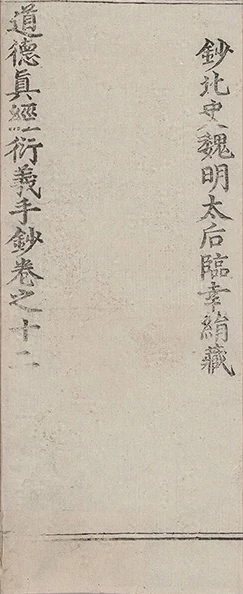 鈔北史魏明太后臨幸絹藏
道德眞經衍義手鈔卷之十二